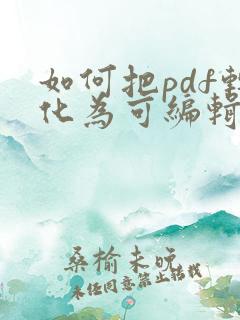 如何把pdf
化为可编辑
桑榆未晚
未经同意禁止转载